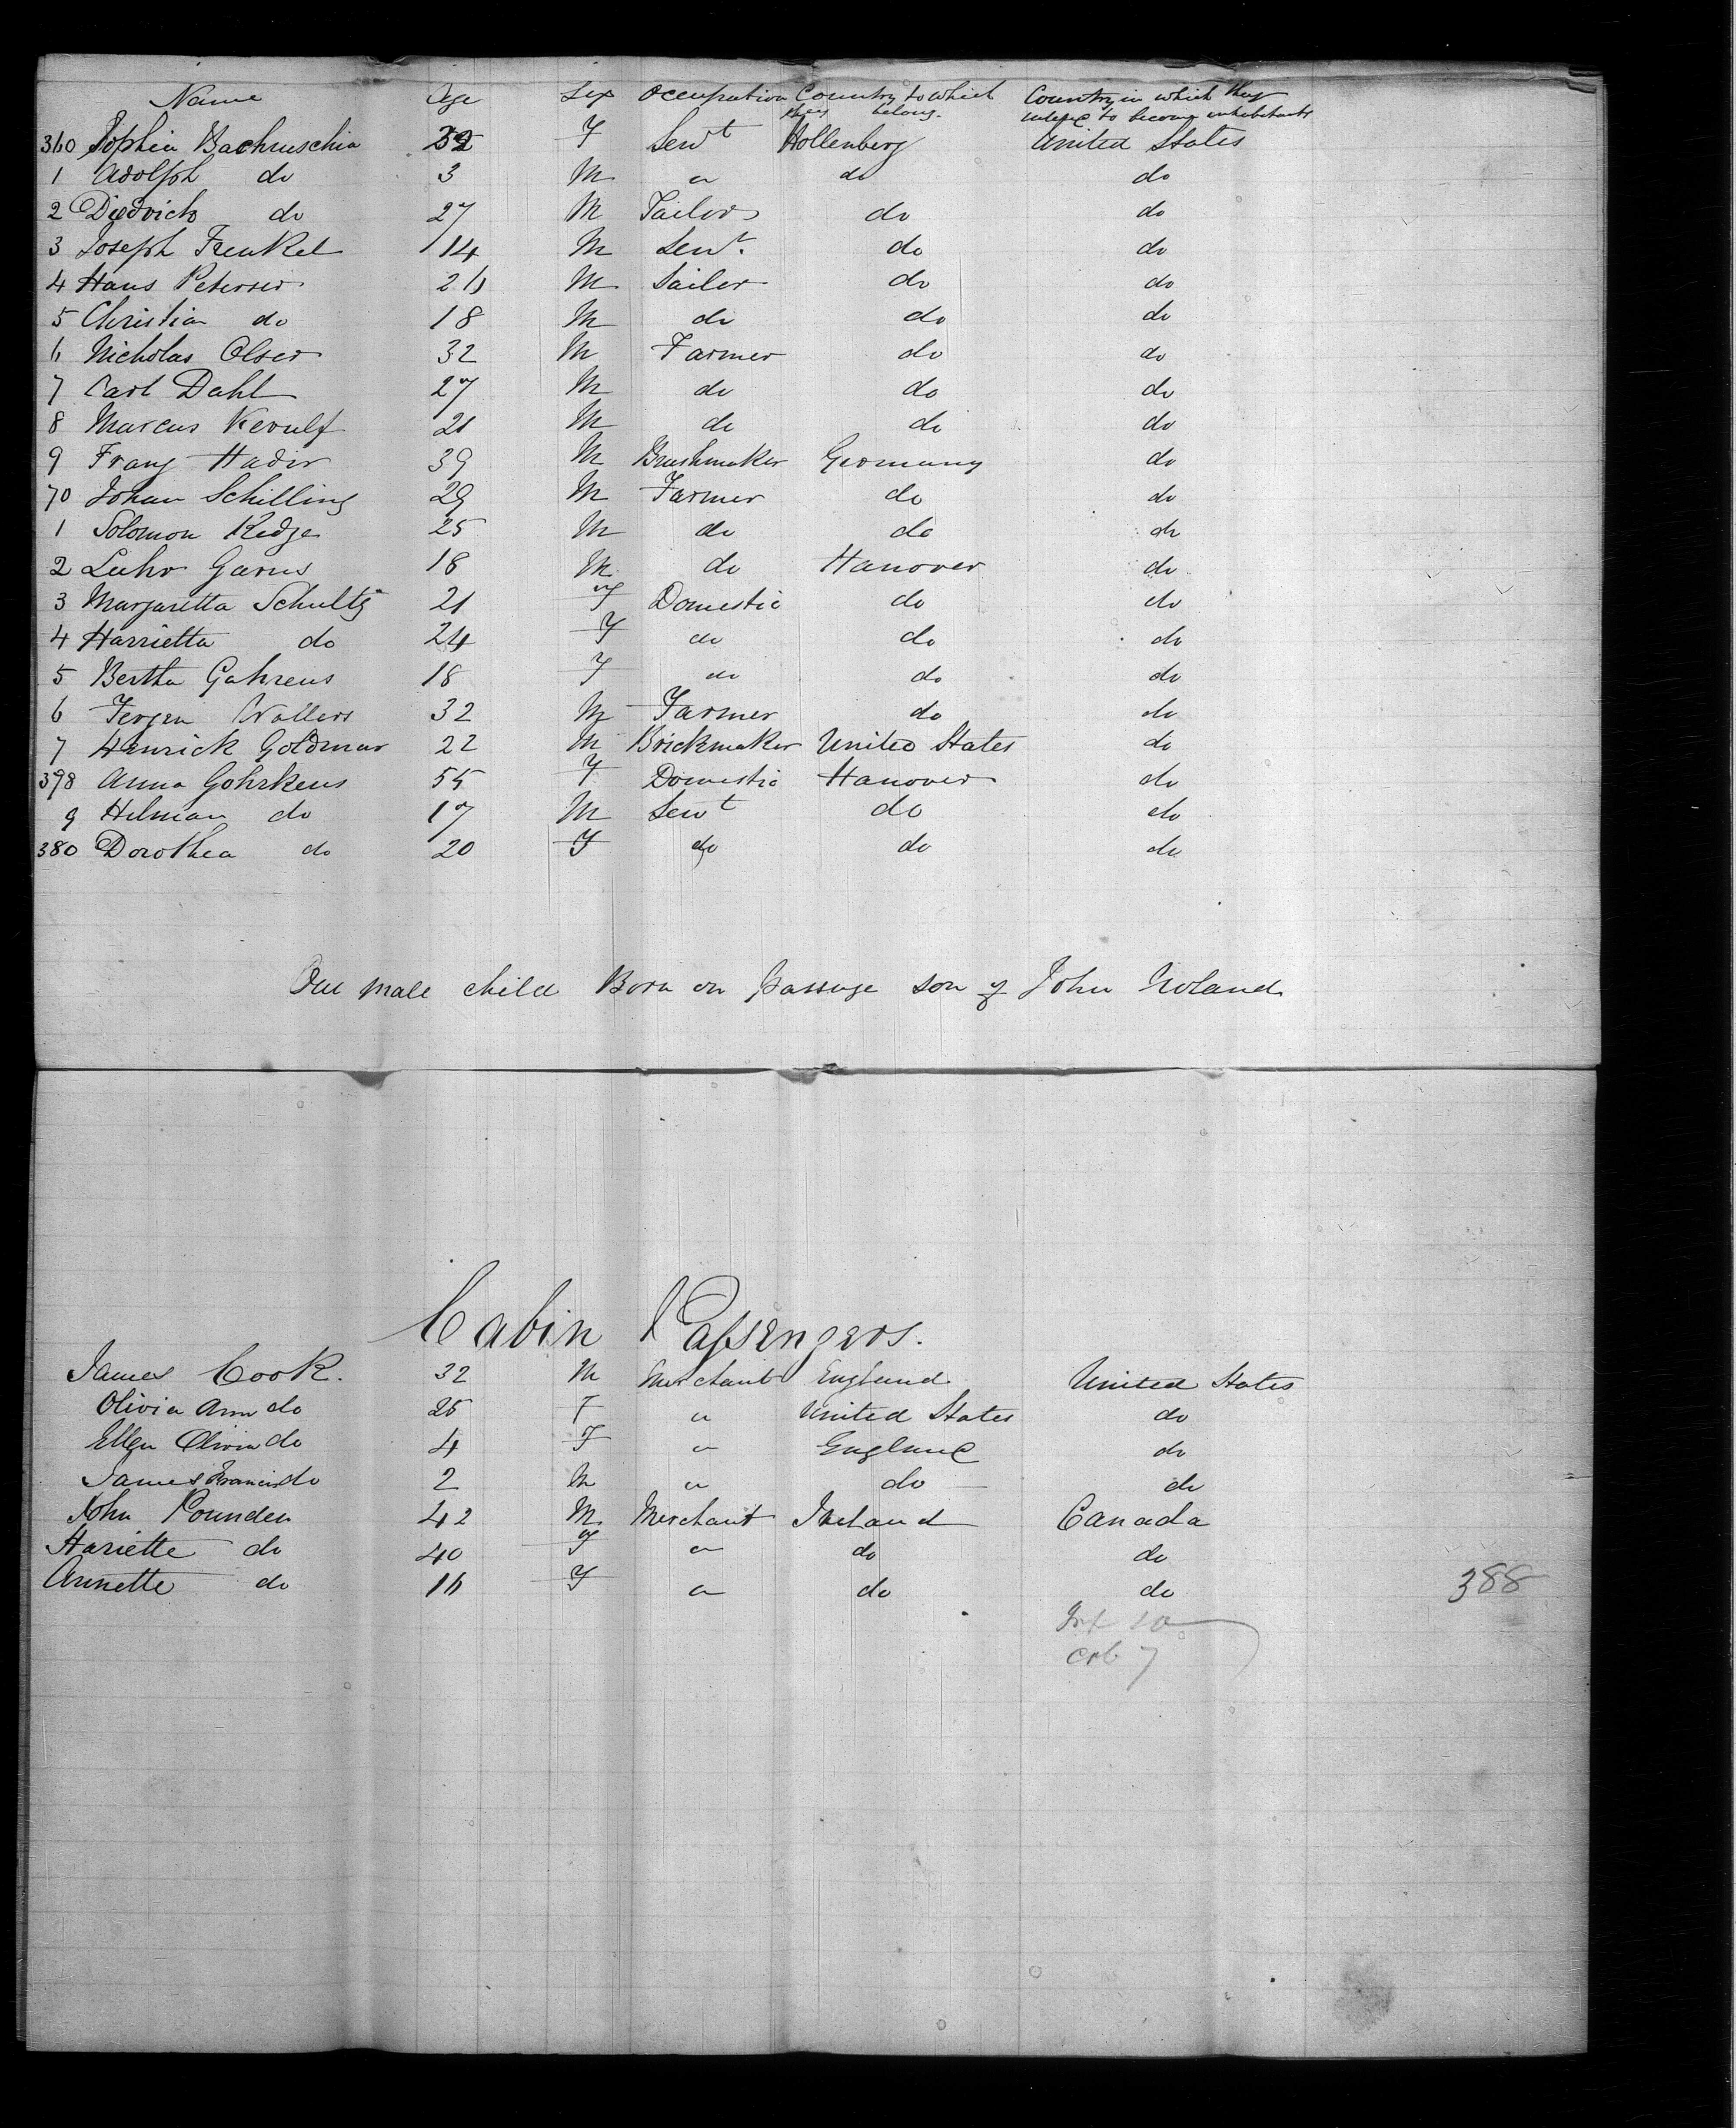 Name Age Sex Occupation Country to which they belong. Country in which they intend to become inhabitants
360 Sophia Bachruschia 32 F Servt Hollenberg United States
1 Adolph do 3 M " do do
2 Diedrich do 27 M Tailor do do
3 Joseph Frenkel 14 M Servt. do do
4 Hans Peterser 26 M Sailor do do
5 Christian do 18 M do do do
6 Nicholas Olser 32 M Farmer do do
7 Carl Dahl 27 M do do do
8 Marcus Kevulf 21 M do do do
9 Franz Hader 39 M Brushmaker Germany do
70 Johan Schilling 29 M Farmer do do
1 Solomon Kedze 25 M do do do
2 Luhr Garus 18 M do Hanover do
3 Margaretta Schultz 21 F Domestic do do
4 Harrietta do 24 F do do do
5 Bertha Gahrens 18 F do do do
6 Jergen Wallers 32 M Farmer do do
7 Henrick Goldmar 22 M Brickmaker United States do
378 Anna Gohrkens 55 F Domestic Hanover do
9 Hilman do 17 M Servt do do
380 Dorothea do 20 F do do do
One male child Born on passage son of John Noland
Cabin Passengers.
James Cook. 32 M Merchant England United States
Olivia Ann do 25 F " United States do
Ellen Olivia do 4 F " England do
James Francis do 2 M " do do
John Pounden 42 M Merchant Ireland Canada
Hariette do 40 F " do do
Annette do 16 F " do do
388
Inf 10
cab 7